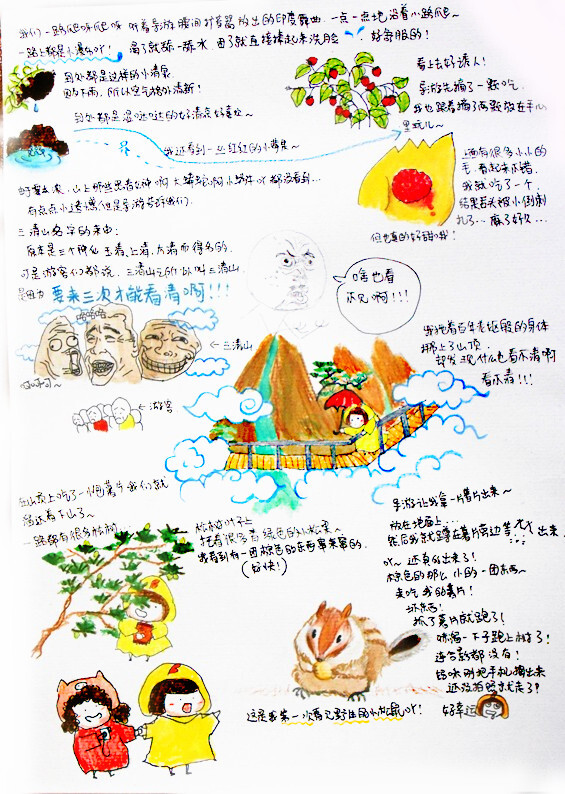 我们一路爬呀爬呀 听着导游腰间扩音器放出的印度舞曲.一点一点地沿着小路爬~
一路上都是小瀑布吖! 渴了就舔一舔水 困了就直接捧起来洗脸 好舒服的!
到处都是这样的小清泉
因为下雨,所以空气格外清新!
到处都是湿哒哒的好清凉好喜欢~
我还看到一丛红红的小莓果
看上去好诱人!
导游先摘了一颗吃
我也跟着摘了两颗放在手心
里玩儿~
上面有很多小小的
毛.看起来不错.
我就吃了一个
结果舌头被小倒刺
扎了… 麻了好久…
但也真的好甜哦!
有点点小遗憾但是导游告诉我们.
三清山名字的来由:
原本是三个神仙 玉清,上清,太清而得名的.
可是游客们都说.三清山之所以叫三清山
是因为 要来三次才能看清啊!!!
啥也看
不见啊!!!
← 三清山
← 游客
我拖着百年老妪般的身体
挪上了山顶
却发现什么也看不清啊
看不清!!!
在山顶上吃了一包薯片我们就
沿途看下山了~
一路都有很多松树…
松树叶子上
托着很多青绿色的小松果~
我看到有一团棕色的东西窜来窜的.
(好快!)
导游让我拿一片薯片出来~
放在地面上…
然后我就蹲在薯片旁边等 出来.
吖~ 还真的出来了!
棕色的那么小的一团东西~
来吃我的薯片!
坏东西!
抓了薯片就跑了!
哧溜一下子跑上树了!
连合影都没有!
哈咪刚把手机掏出来
还没拍照就走了!
好幸运
这是我第一次看见野生的小松鼠吖!